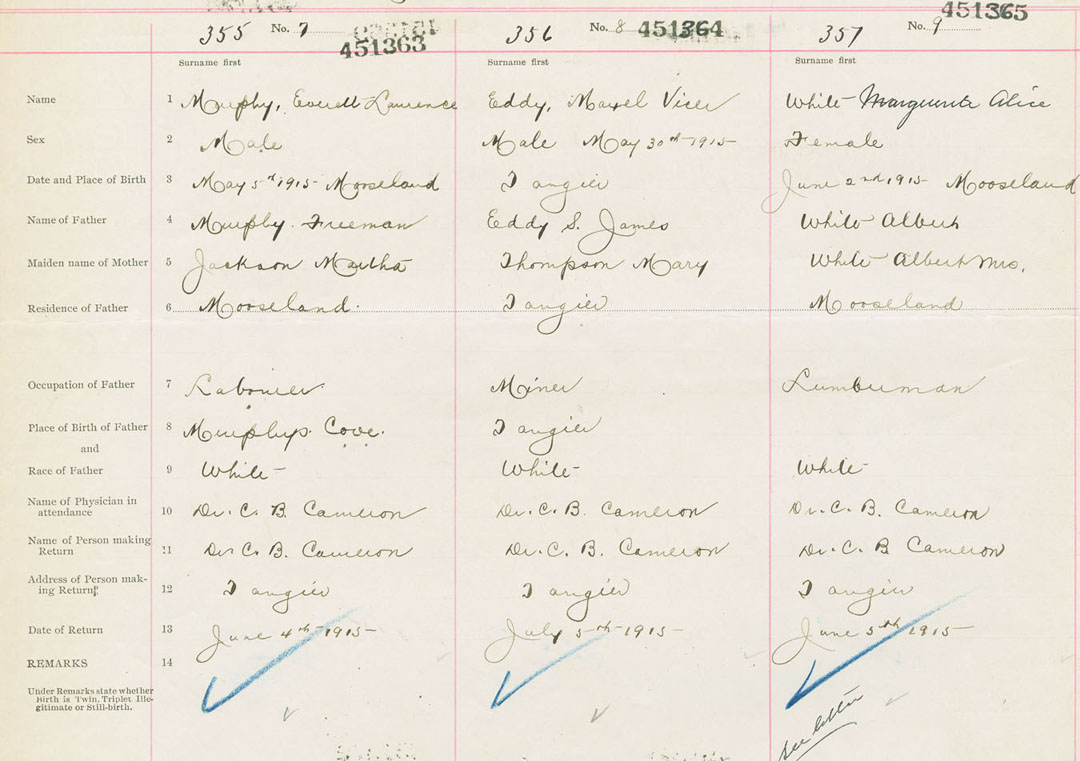 355 No. 7 451363 356 No. 8 451364 357 No. 9 451365
Surname first Surname first Surname first
Name 1 Murphy, Everett Laurence Eddy, Vicer White Marguerite Alice
Sex 2 Male Male May 30th 1915 Female
Date and Place of Birth 3 May 5th 1915 Mooseland Tangier June 2nd 1915 Mooseland
Name of Father 4 Murphy Freeman Eddy S. James White Albert
Maiden name of Mother 5 Jackson Martha Thompson Mary White Albert Mrs.
Residence of Father 6 Mooseland. Tangier Mooseland
Occupation of Father 7 Labourer Miner Lumberman
Place of Birth of Father 8 Murphys Cove. Tangier
and
Race of Father 9 White White White
Name of Physician in
attendance 10 Dr. C. B. Cameron Dr. C. B. Cameron Dr. C. B. Cameron
Name of Person making
Return 11 Dr. C. B. Cameron Dr. C. B. Cameron Dr. C. B Cameron
Address of Person mak-
ing Return 12 Tangier Tangier Tangier
Date of Return 13 June 4th 1915 July 5th 1915 June 5th 1915
REMARKS 14
Under Remarks state whether
Birth is Twin, Triplet Ille-
gitimate or Still-birth.
see letter